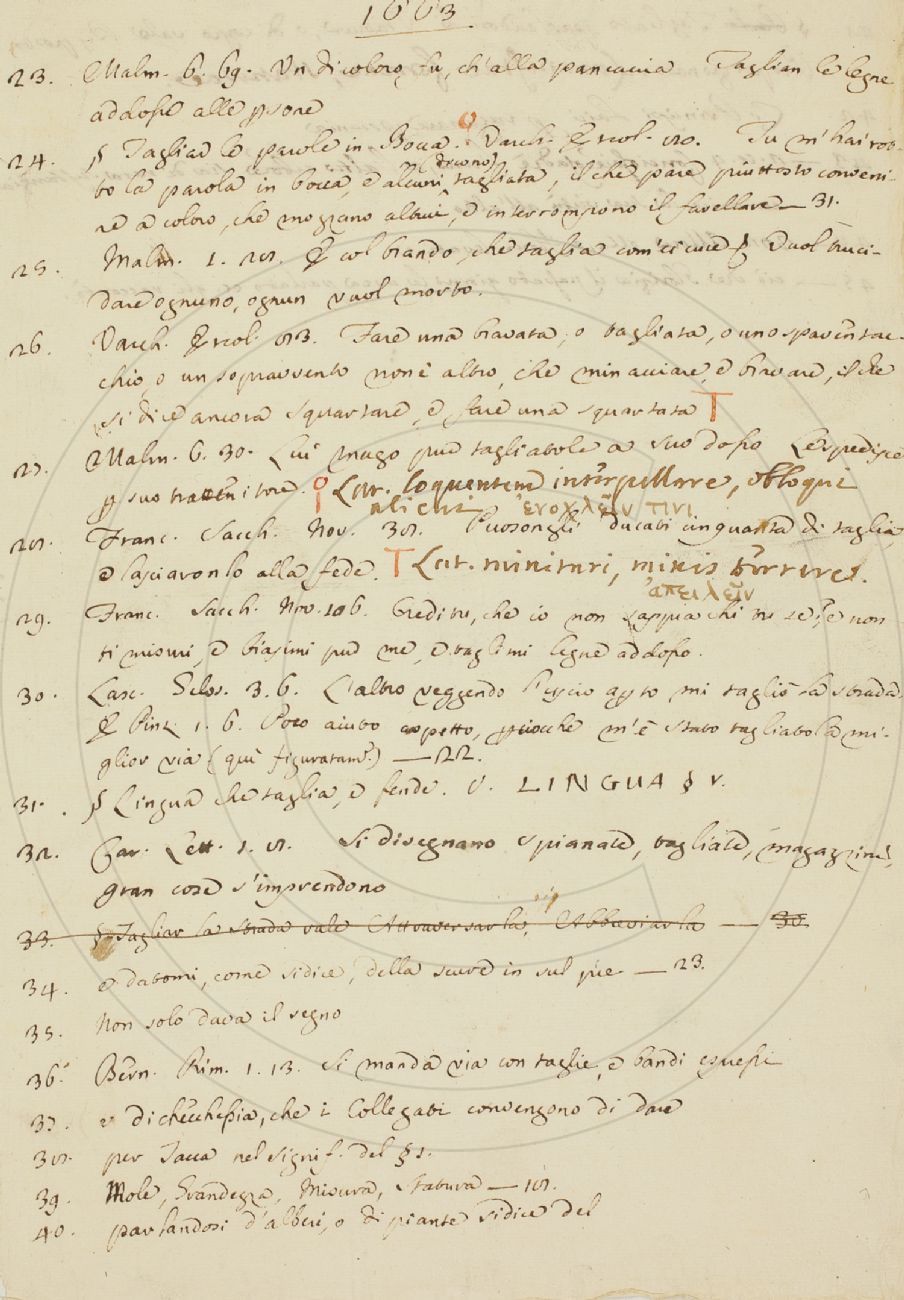 1663
23. Malm. 6. 69. Un di coloro fu, ch'alla pancaccia Taglian le legne
addosso alle psone
24. § Tagliar le parole in Bocca. Varch. Ercol. 80. Tu m'hai rot-
to la parola in bocca, e alcuni (dicono) tagliata, il che pare piuttosto conveni-
re a coloro, che mozzano altrui, e interrompono il favellare — 31.
25. Malm. 1. 28. E col brando, che taglia com'ei cuce § Vuol truci-
dare ognuno, ognun vuol morto.
26. Varch. Ercol. 83. Fare una bravata, o tagliata, o uno spaventac-
chio, o un sopravvento non è altro, che minacciare, e bravare, il che
si dice ancora squartare, e fare una squartata T
27. Malm. 6. 30. Lui mago può tagliatole a suo dosso L'espedisce
p suo trattenitore. Lat. loquentem interpellare, obloqui
alicui ἐνοχλεῖν τινι
28. Franc. Sacch. Nov. 38. Puosongli ducati cinquanta di taglia
e lasciaronlo alla fede. T Lat. minitari, minis terrere.
ἀπειλεῖν
29. Franc. Sacch. Nov. 106. Credi tu, che io non sappia chi tu se', e non
ti muovi, e biasimi pur me, e taglimi legne addosso.
30. Lasc. Gelos. 3. 6. L'altro veggendo l'uscio apto mi tagliò la strada.
E Pinz. 1. 6. Poco aiuto aspetto, pciocchè m'è stato tagliato la mi-
glior via (quì figuratam.e) — 22.
31. § Lingua che taglia, e fende. V. LINGUA § V.
32. Car. Lett. 1. 8. Si disegnano spianate, tagliate, magazzini,
gran cose s'imprendono
33. § Tagliar la strada vale Attraversarla, Abbreviarla — 30.
34. e datomi, come si dice, della scure in sul piè — 23.
35. Non solo dava il segno
36. Bern. Rim. 1. 13. Si manda via con taglie, e bandi espressi
37. e di checchessia, che i Collegati convengono di dare
38. per Tacca nel signif. del § 1.
39. Mole, Grandezza, Misura, Statura — 18.
40. parlandosi d'alberi, o di piante si dice del